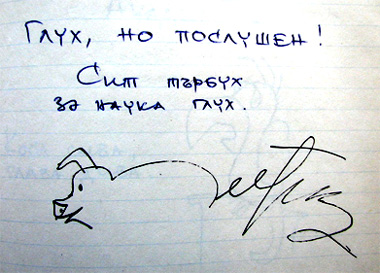 Глух, но послушен!
Сит търбух
за наука глух.